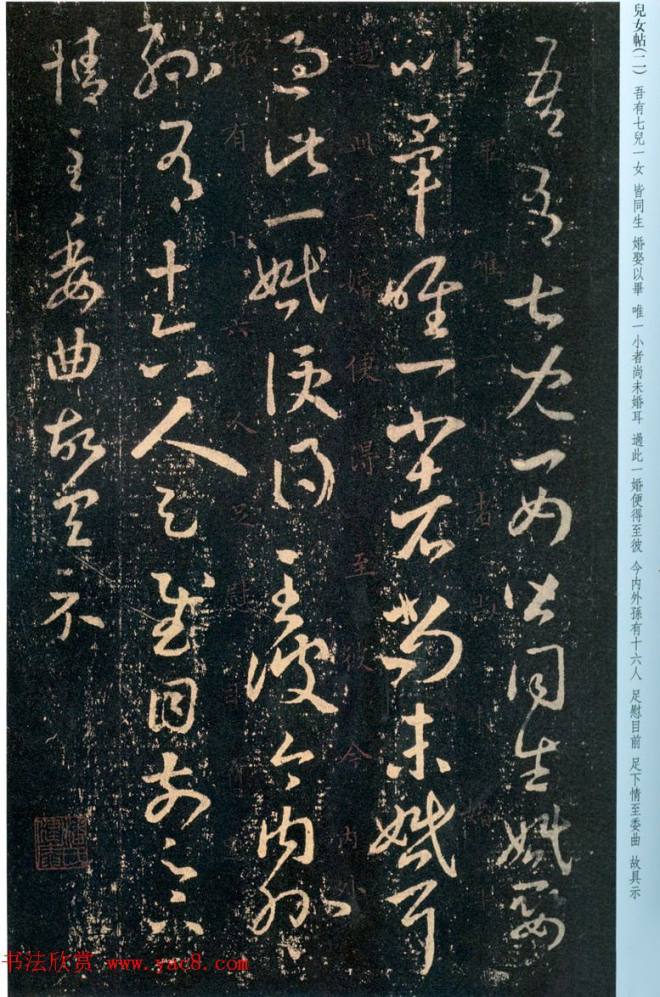 兒女帖(二) 吾有七兒一女 皆同生 婚娶以畢 唯一小者尚未婚耳 過此一婚便得至彼 今内外孫有十六人 足慰目前 足下情至委曲 故具示
吾有七兒一女皆同生婚娶
以畢唯一小者尚未婚耳
過此一婚便得至彼今内外
孫有十六人足慰目前足下
情至委曲故具示
书法欣赏 www.yac8.com